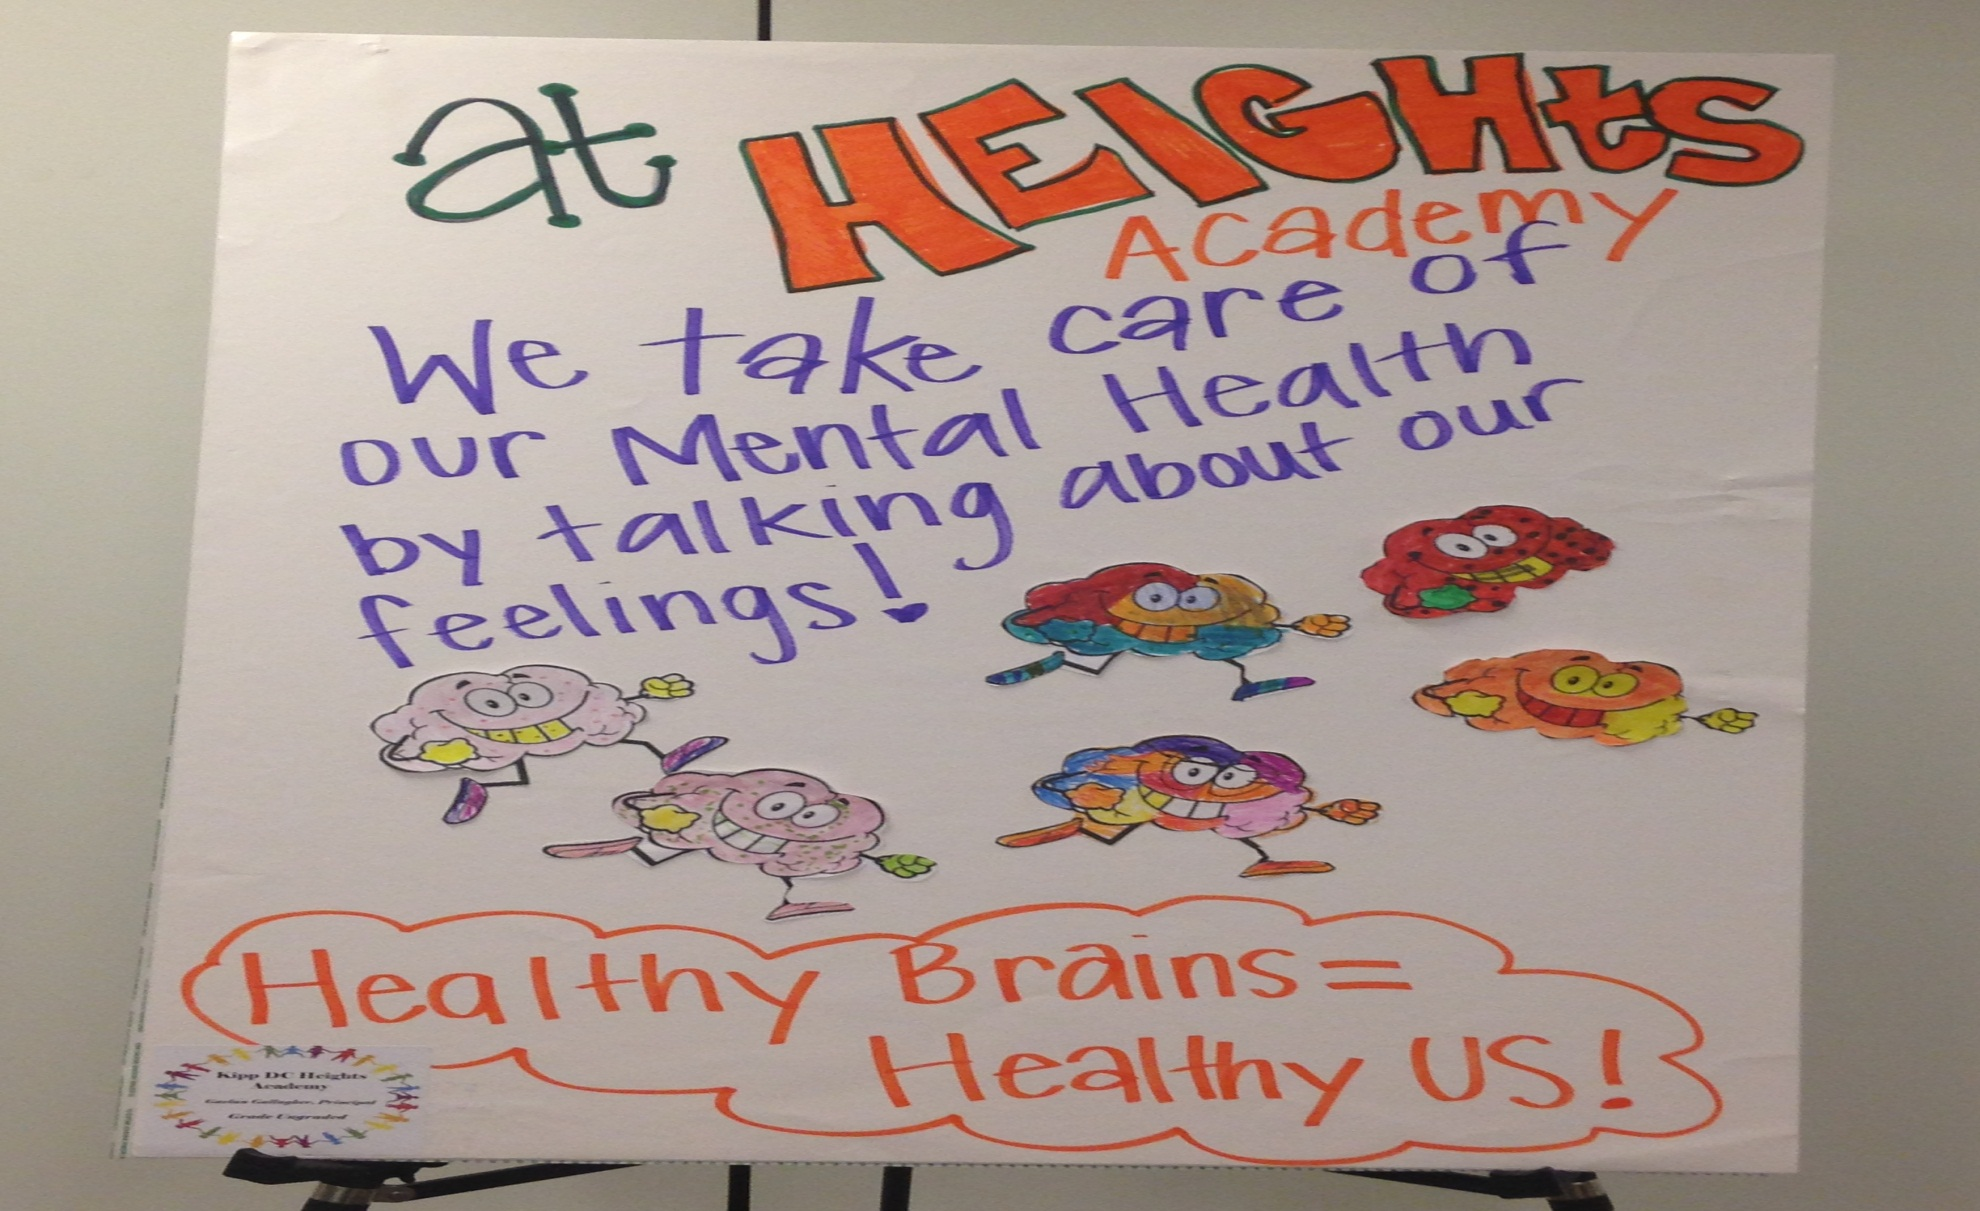 at HEIGHtS
Academy
We take care of
our Mental Health
by talking about our
feelings!
Healthy Brains =
Healthy US!
Kipp DC Heights
Academy
Gavinn Gallagher, Principal
Grade Ungraded